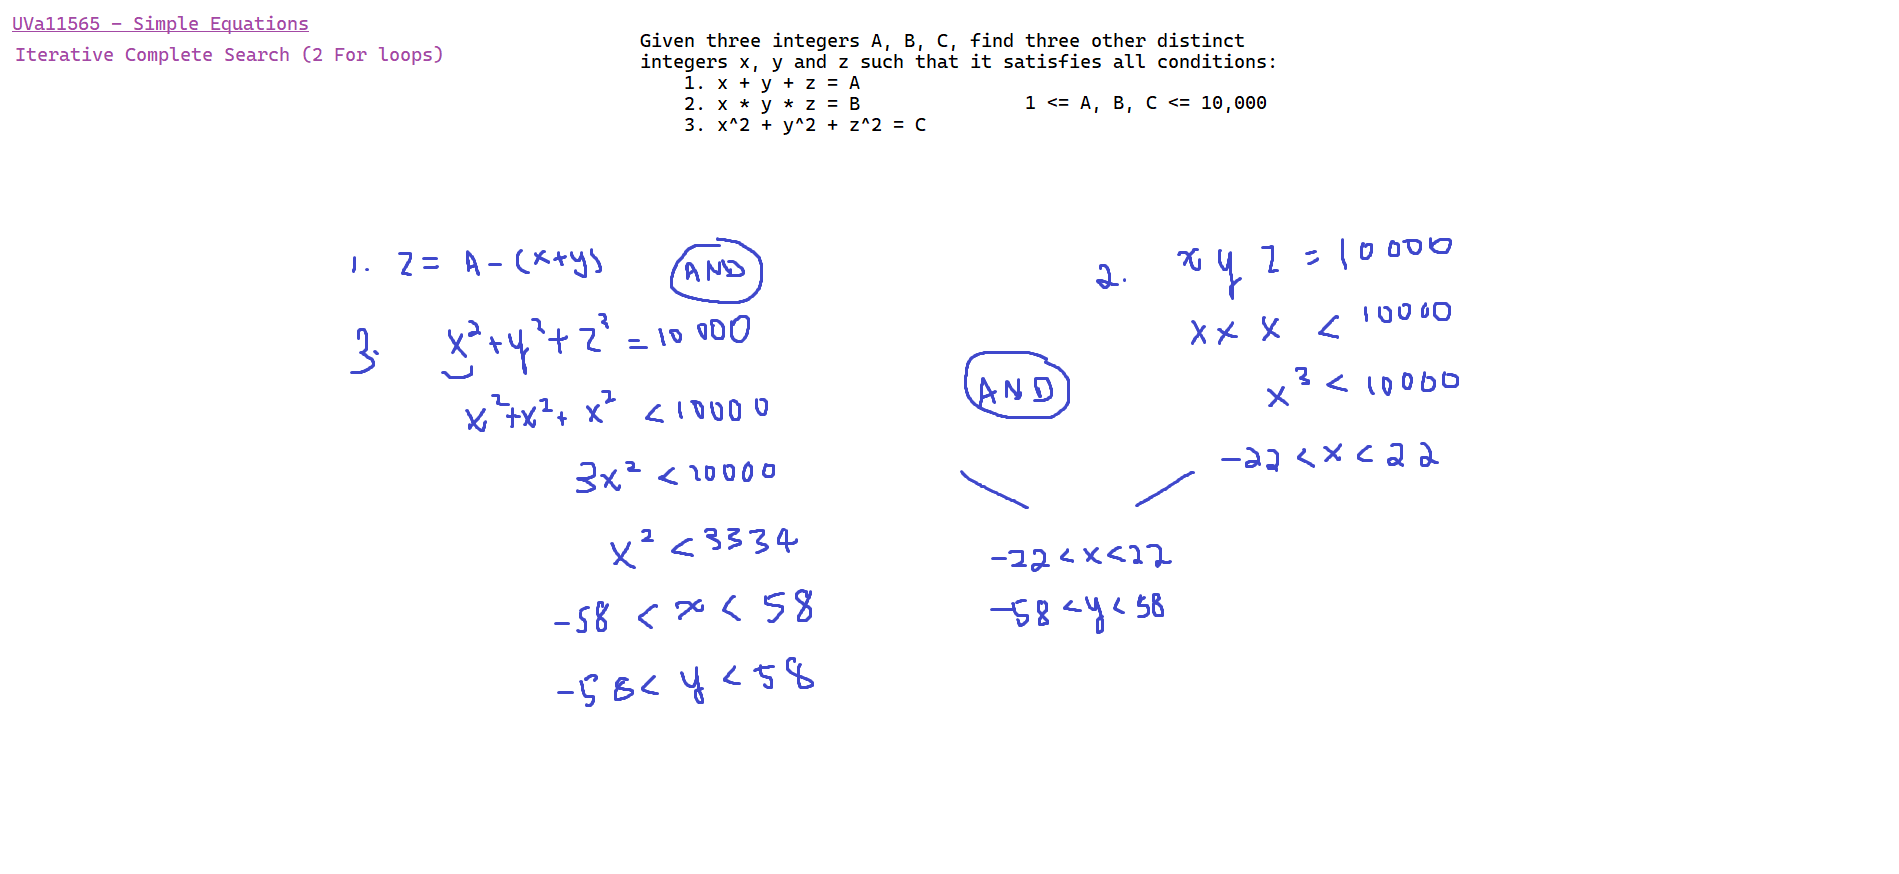 UVa11565 – Simple Equations
Iterative Complete Search (2 For loops)
Given three integers A, B, C, find three other distinct
integers x, y and z such that it satisfies all conditions:
1. x + y + z = A
2. x * y * z = B
1 <= A, B, C <= 10,000
3. x^2 + y^2 + z^2 = C
1. z = A - (x+y)
AND
3. x² + y² + z² = 10000
x² + x² + x² < 10000
3x² < 10000
x² < 3334
-58 < x < 58
-58 < y < 58
AND
2. x y z = 10000
x x x < 10000
x³ < 10000
-22 < x < 22
-22 < x < 22
-58 < y < 58